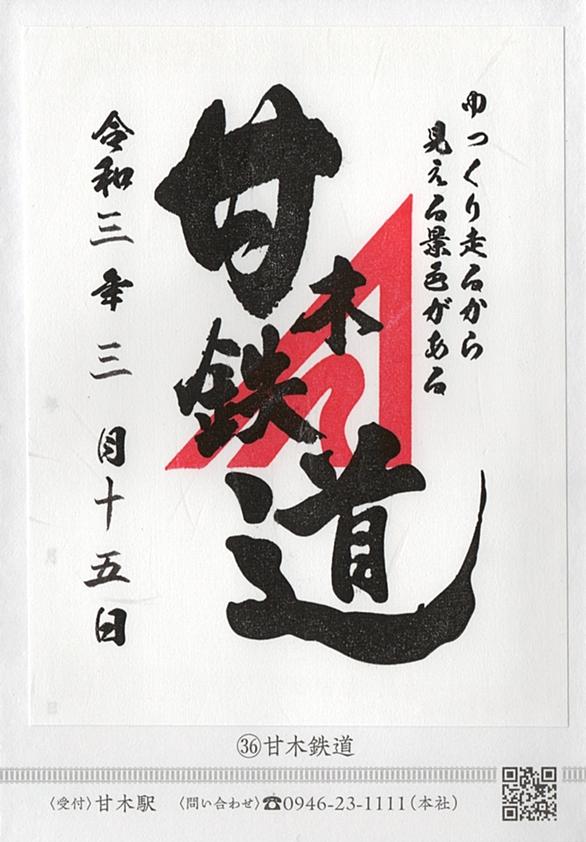 ゆっくり走るから
見える景色がある
甘木鉄道
令和三年三月十五日
㊱甘木鉄道
〈受付〉甘木駅 〈問い合わせ〉☎0946-23-1111(本社)